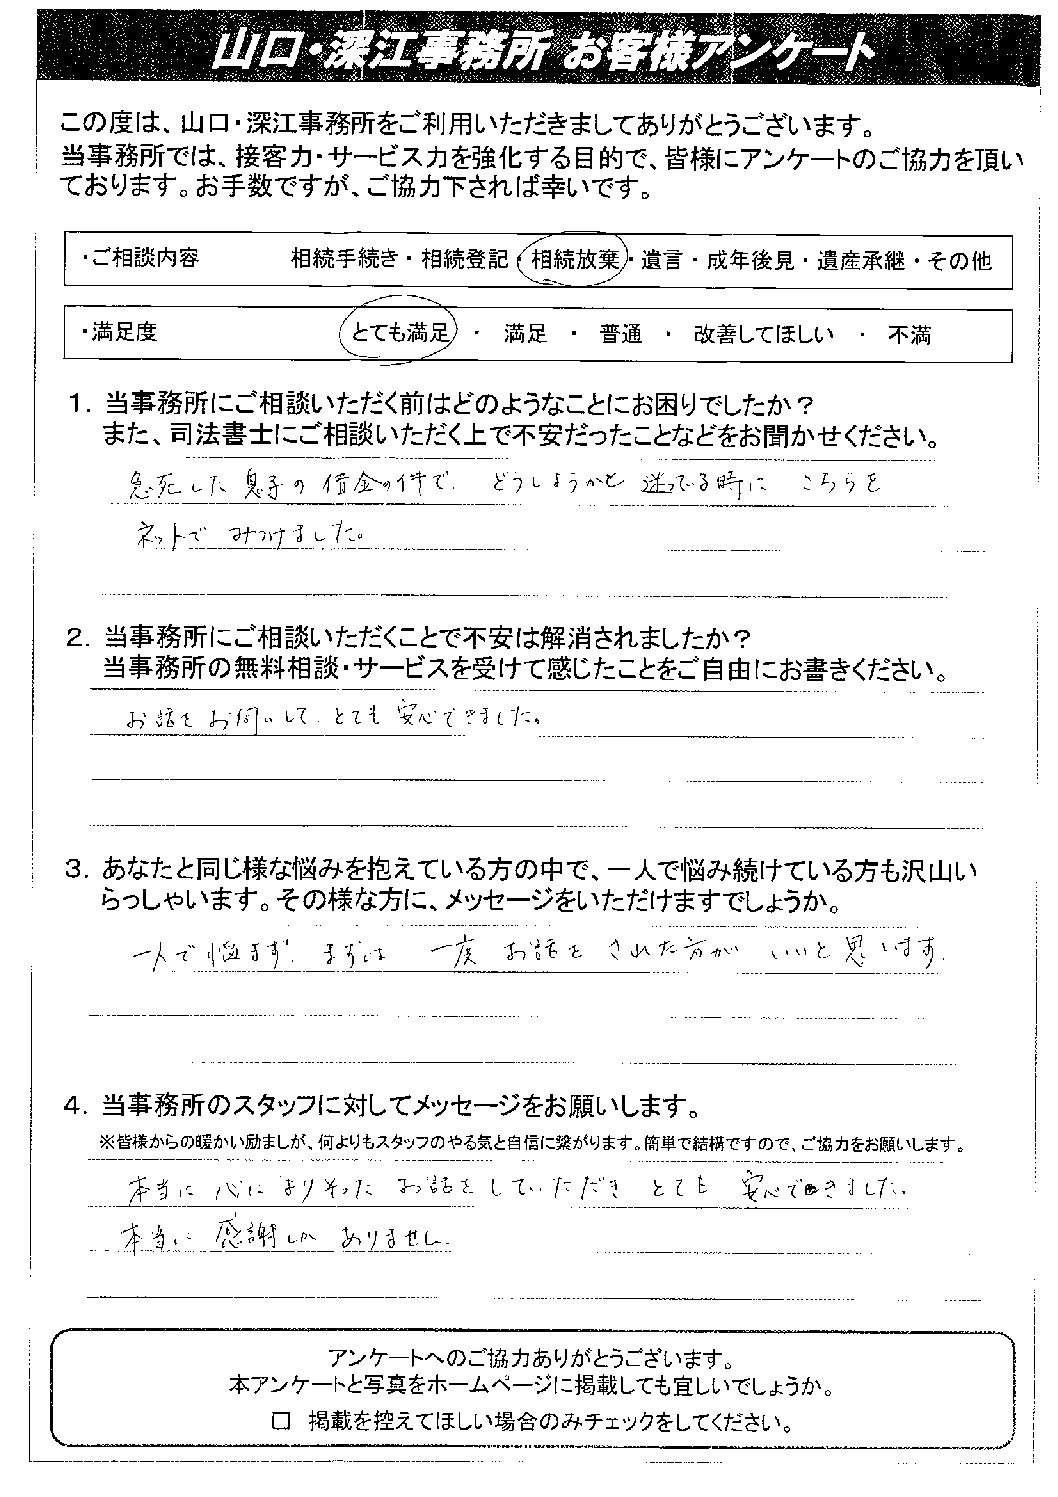 山口・深江事務所 お客様アンケート
この度は、山口・深江事務所をご利用いただきましてありがとうございます。
当事務所では、接客力・サービス力を強化する目的で、皆様にアンケートのご協力を頂い
ております。お手数ですが、ご協力下されば幸いです。
・ご相談内容 相続手続き・相続登記・相続放棄・遺言・成年後見・遺産承継・その他
・満足度 とても満足 ・ 満足 ・ 普通 ・ 改善してほしい ・ 不満
1. 当事務所にご相談いただく前はどのようなことにお困りでしたか？
また、司法書士にご相談いただく上で不安だったことなどをお聞かせください。
急死した息子の借金の件で、どうしようかと迷ってる時に こちらを
ネットで みつけました。
2. 当事務所にご相談いただくことで不安は解消されましたか？
当事務所の無料相談・サービスを受けて感じたことをご自由にお書きください。
お話をお伺いして、とても 安心できました。
3. あなたと同じ様な悩みを抱えている方の中で、一人で悩み続けている方も沢山い
らっしゃいます。その様な方に、メッセージをいただけますでしょうか。
一人で悩まず、まずは 一度 お話をされた方が いいと思います。
4. 当事務所のスタッフに対してメッセージをお願いします。
※皆様からの暖かい励ましが、何よりもスタッフのやる気と自信に繋がります。簡単で結構ですので、ご協力をお願いします。
本当に 心に よりそった お話をしていただき とても 安心できました。
本当に 感謝しか ありません。
アンケートへのご協力ありがとうございます。
本アンケートと写真をホームページに掲載しても宜しいでしょうか。
□ 掲載を控えてほしい場合のみチェックをしてください。